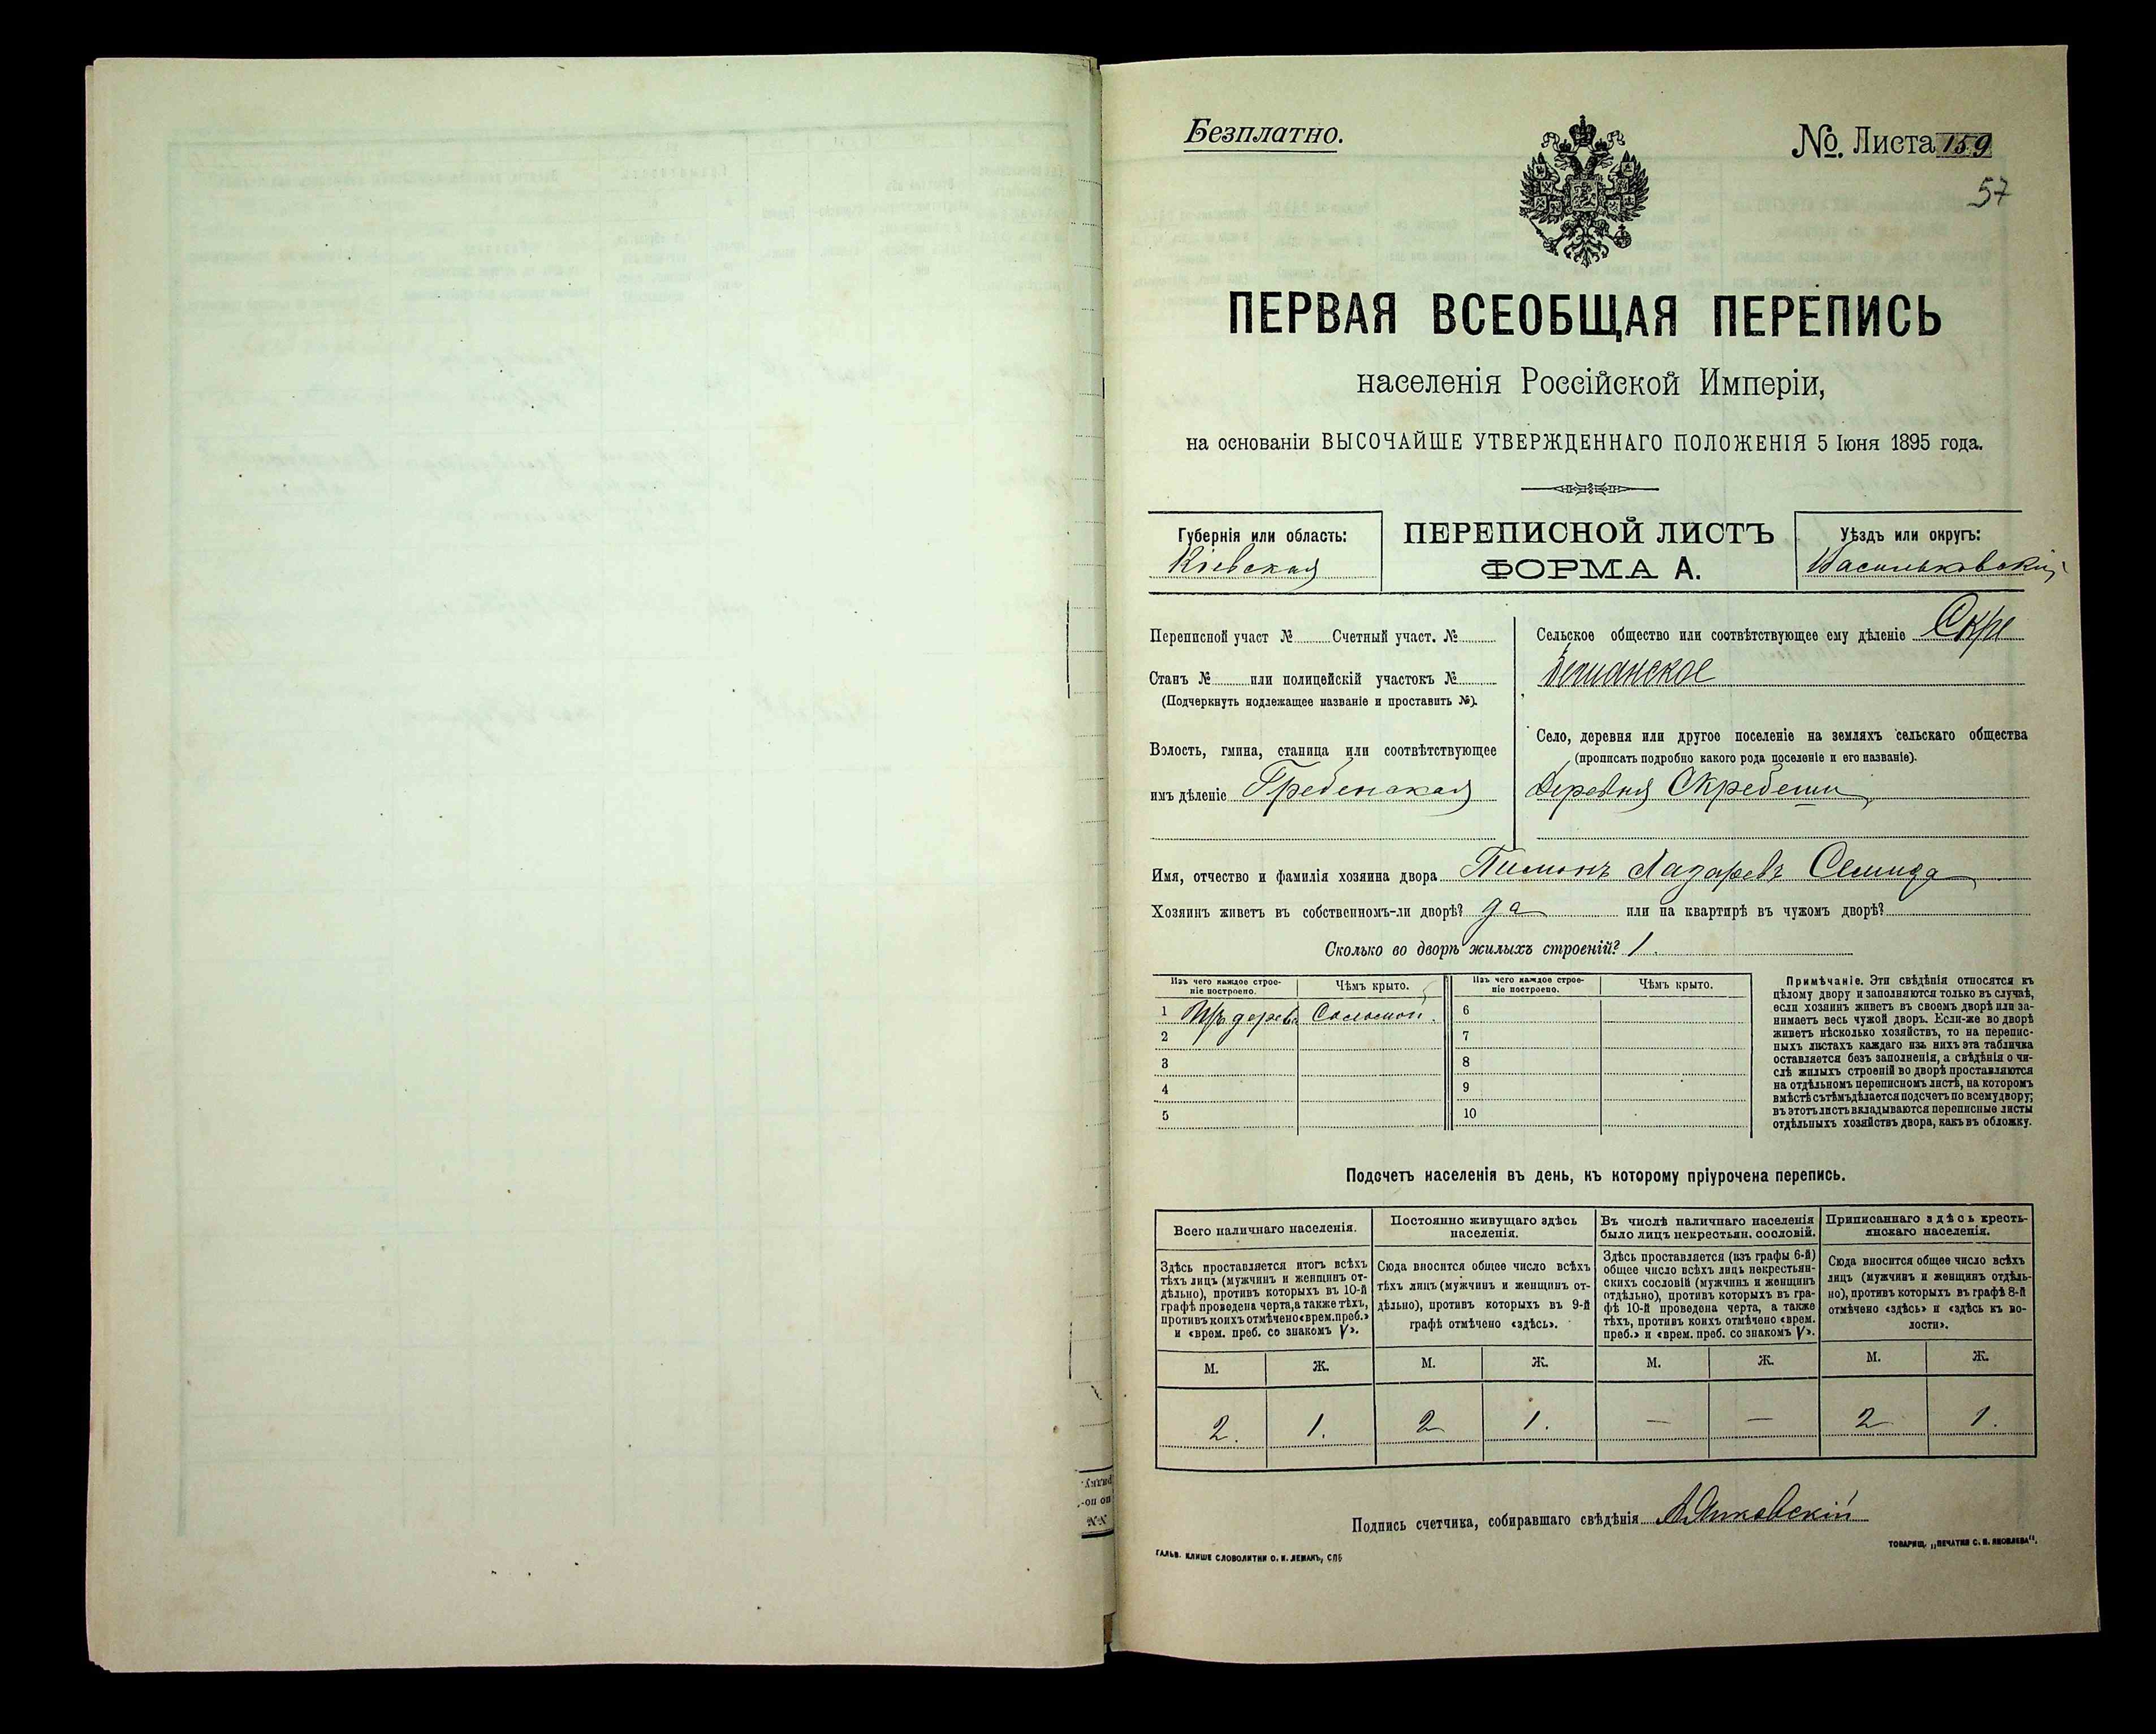 Безплатно.
№. Листа 159
57
ПЕРВАЯ ВСЕОБЩАЯ ПЕРЕПИСЬ
населенія Россійской Имперіи,
на основаніи ВЫСОЧАЙШЕ УТВЕРЖДЕННАГО ПОЛОЖЕНІЯ 5 Іюня 1895 года.
Губернія или область:
Кіевская
ПЕРЕПИСНОЙ ЛИСТЪ
ФОРМА А.
Уѣздъ или округъ:
Васильковскій
Переписной участ № Счетный участ. №
Станъ № или полицейскій участокъ №
(Подчеркнуть надлежащее названіе и проставить №).
Волость, гмина, станица или соотвѣтствующее
имъ дѣленіе Гребенская
Сельское общество или соотвѣтствующее ему дѣленіе Скре
бешанское
Село, деревня или другое поселеніе на земляхъ сельскаго общества
(прописать подробно какого рода поселеніе и его названіе).
Деревня Скребеши
Имя, отчество и фамилія хозяина двора Пимонъ Лазаревъ
Хозяинъ живетъ въ собственномъ-ли дворѣ? да или на квартирѣ въ чужомъ дворѣ?
Сколько во дворѣ жилыхъ строеній? 1.
Изъ чего каждое строе-
ніе построено.
Чѣмъ крыто.
Изъ чего каждое строе-
ніе построено.
Чѣмъ крыто.
1 Изъ дерева Соломой. 6
2 7
3 8
4 9
5 10
Примѣчаніе. Эти свѣдѣнія относятся къ
цѣлому двору и заполняются только въ случаѣ,
если хозяинъ живетъ въ своемъ дворѣ или за-
нимаетъ весь чужой дворъ. Если-же во дворѣ
живетъ нѣсколько хозяйствъ, то на перепис-
ныхъ листахъ каждаго изъ нихъ эта табличка
оставляется безъ заполненія, а свѣдѣнія о чи-
слѣ жилыхъ строеній во дворѣ проставляются
на отдѣльномъ переписномъ листѣ, на которомъ
вмѣстѣ съ тѣмъ дѣлается подсчетъ по всему двору;
въ этотъ листъ вкладываются переписные листы
отдѣльныхъ хозяйствъ двора, какъ въ обложку.
Подсчетъ населенія въ день, къ которому пріурочена перепись.
Всего наличнаго населенія.
Здѣсь проставляется итогъ всѣхъ
тѣхъ лицъ (мужчинъ и женщинъ от-
дѣльно), противъ которыхъ въ 10-й
графѣ проведена черта, а также тѣхъ,
противъ коихъ отмѣчено «врем. преб.»
и «врем. преб. со знакомъ V».
М. Ж.
2. 1.
Постоянно живущаго здѣсь
населенія.
Сюда вносится общее число всѣхъ
тѣхъ лицъ (мужчинъ и женщинъ от-
дѣльно), противъ которыхъ въ 9-й
графѣ отмѣчено «здѣсь».
М. Ж.
2 1.
Въ числѣ наличнаго населенія
было лицъ некрестьян. сословій.
Здѣсь проставляется (изъ графы 6-й)
общее число всѣхъ лицъ некрестьян-
скихъ сословій (мужчинъ и женщинъ
отдѣльно), противъ которыхъ въ гра-
фѣ 10-й проведена черта, а также
тѣхъ, противъ коихъ отмѣчено «врем.
преб.» и «врем. преб. со знакомъ V».
М. Ж.
— —
Приписаннаго здѣсь кресть-
янскаго населенія.
Сюда вносится общее число всѣхъ
лицъ (мужчинъ и женщинъ отдѣль-
но), противъ которыхъ въ графѣ 8-й
отмѣчено «здѣсь» и «здѣсь къ во-
лости».
М. Ж.
2 1.
Подпись счетчика, собиравшаго свѣдѣнія А. Янковскій
ГАЛЬВ. КЛИШЕ СЛОВОЛИТНИ О. И. ЛЕМАНЪ, СПБ
ТОВАРИЩ. „ПЕЧАТНЯ С. П. ЯКОВЛЕВА".